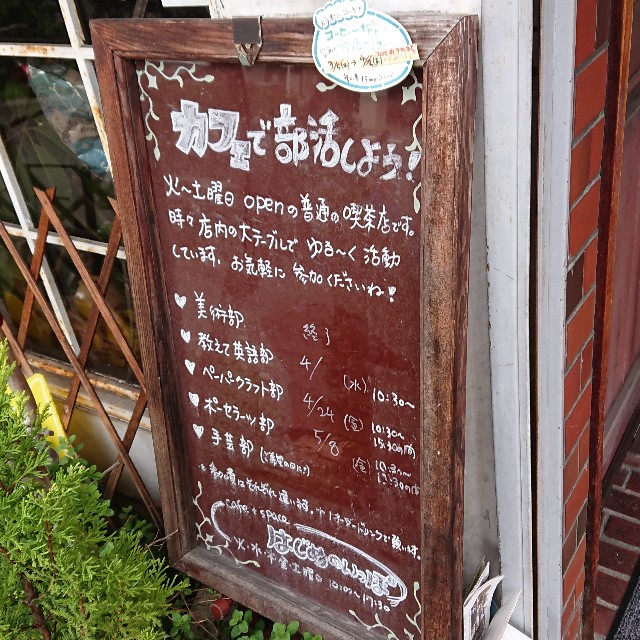 カフェで部活しよう!
火〜土曜日 openの普通の喫茶店です。
時々店内の大テーブルで ゆる〜く活動
しています。お気軽に 参加くださいね!
美術部 終了
教えて英語部 4/ (水) 10:30〜
ペーパークラフト部 4/24 (金) 10:30〜
ポーセラーツ部 5/8 (金) 10:30〜
手芸部
cafe + space
はじめのいっぽ
火・水・木・金・土曜日 10:00〜17:30